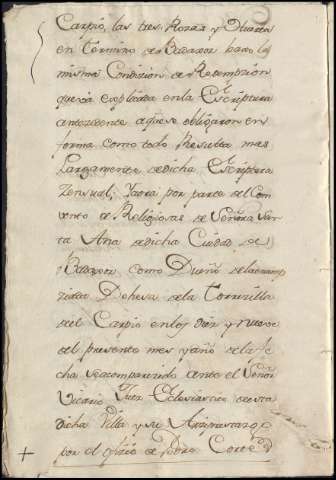 Carpio, las tres Rozas y Quarta
en termino de Badajoz bajo la
misma Condicion de Redempcion
que va explicada en la Escriptura
antezedente a q.e se obligaron en
forma como todo Resulta mas
Largamente de dicha Escriptura
Zensual; Yaora por parte del Com
vento de Religiosas de Señora San
ta Ana de dicha Ciudad de
Badajoz como Dueño de la
Dehesa de la Torrezilla
del Carpio en los diez y Nueve
del presente mes y año de la fe
cha Se a comparezido ante el Señor
Vicario Juez Eclesiastico de esta
dicha Villa y su
por el ofizio de Pedro Cortes